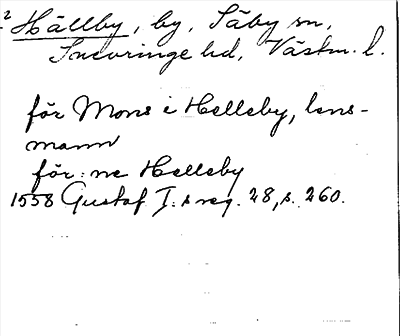 2 Hällby, by, Säby sn,
Snevringe hd, Västm. l.
för Mons i Helleby, lens-
mann
för: ne Helleby
1558 Gustaf I:s reg. 28, s. 260.